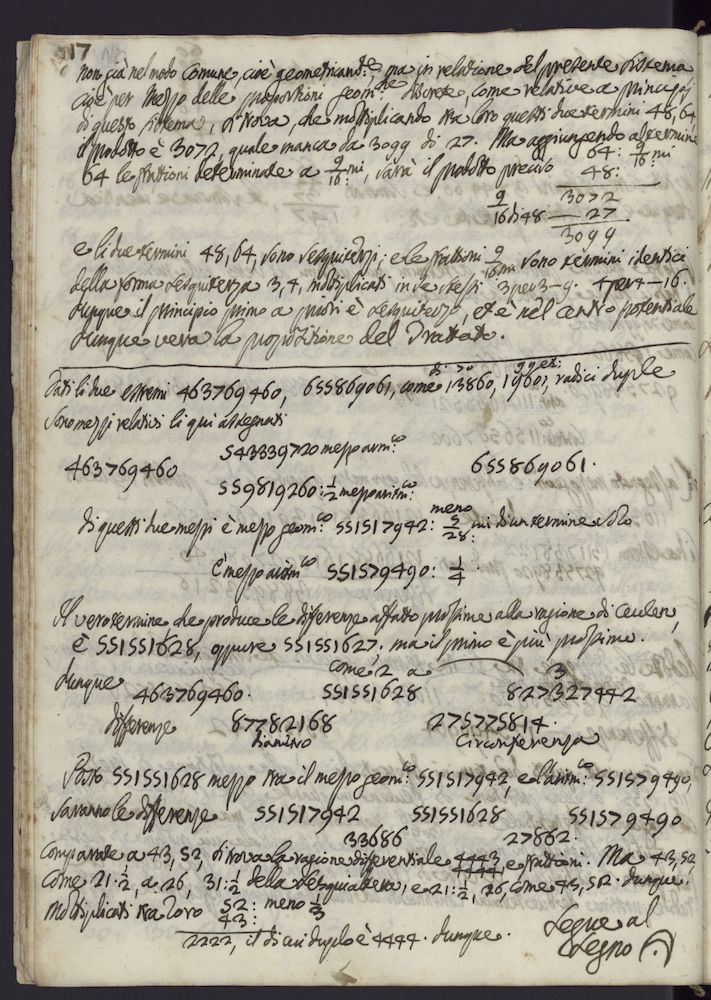 17
non già nel modo comune, cioè geometricamte, ma in relazione del presente sistema
cioè per mezzo delle proporzioni geomche discrete, come relative a principj
di questo sistema, si trova, che moltiplicando tra loro questi due termini 48, 64
il prodotto è 3072, quale manca da 3099 di 27. Ma aggiungendo al termine
64 le frazioni determinate a 9/16 mi, sarà il prodotto preciso 64: 9/16: mi
48:
3072
9/16 di 48 — 27
3099
e li due termini 48, 64, sono sesquiterzi; e le frazioni 9/16 mi sono termini identici
della forma sesquiterza 3, 4, moltiplicati in se stessi 3 per 3 — 9. 4 per 4 — 16.
dunque il principio primo a priori è sesquiterzo, et è nel centro potentiale
dunque vera la propositione del Trattato.
Dati li due estremi 463769460, 655869061, come di 70 13860, di 99 et: 19601, radici duple
sono mezzi relativi li qui assegnati
463769460 543339720 mezzo armco 655869061.
559819260: 1/2 mezzo aritmco
di questi due mezzi è mezzo geomco 551517942: meno 9/28: mi di un termine solo
È mezzo aritmco 551579490: 1/4.
Il vero termine che produce le differenze affatto prossime alla ragione di Ceulen,
è 551551628, oppure 551551627. ma il primo è più prossimo.
come 2 a 3
dunque 463769460. 551551628 827327442
differenze 87782168 275775814.
Diamitro Circonferenza
Posto 551551628 mezzo tra il mezzo geomco 551517942, e l'aritmco 551579490,
saranno le differenze 551517942 551551628 551579490
33686 27862.
Comparate a 43, 52, si trova la ragione differentiale 4443 4444, e frazioni. Ma 43, 52,
come 21: 1/2, a 26, 31: 1/2 della sesquialtera, e 21: 1/2, 26, come 43, 52. dunque.
Moltiplicati tra loro 52: meno 1/3
43:
2222, il di cui duplo è 4444. dunque.
Segue al
segno